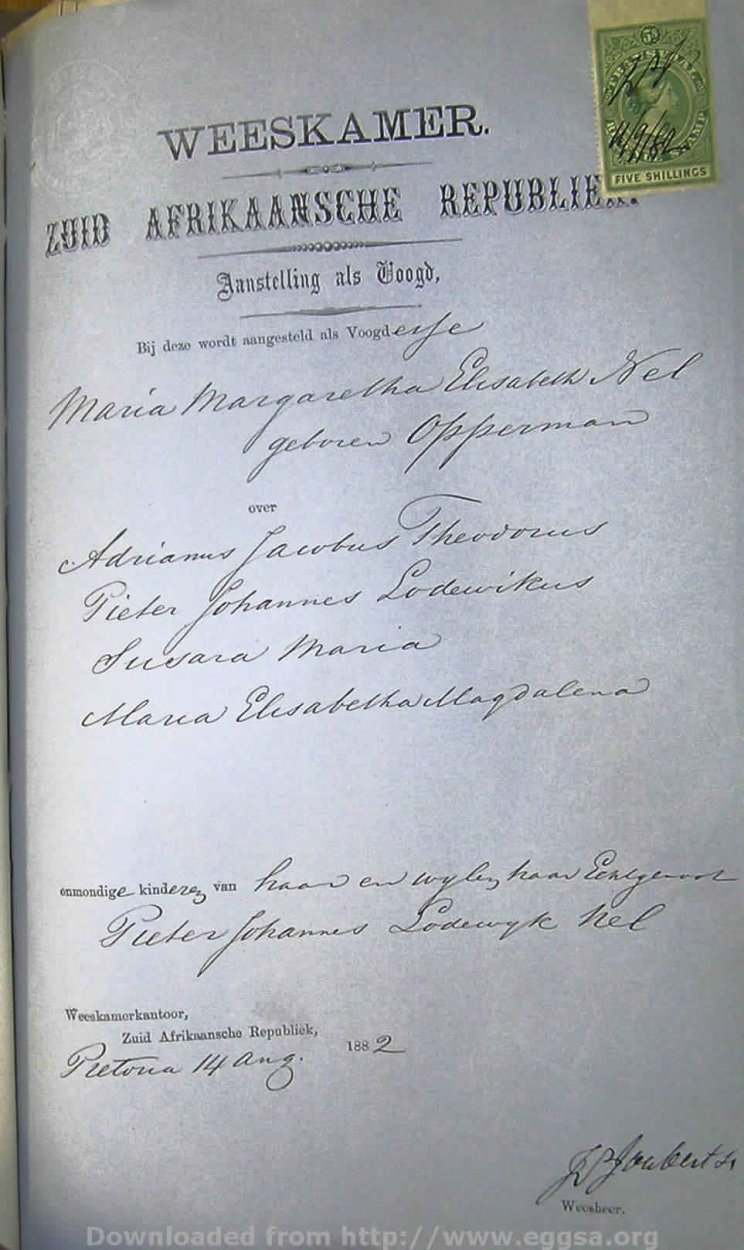 WEESKAMER.
ZUID AFRIKAANSCHE REPUBLIEK.
5/
TRANSVAAL
FIVE SHILLINGS
Aanstelling als Voogd,
Bij deze wordt aangesteld als Voogdesse
Maria Margaretha Elisabeth Nel
geboren Opperman
over
Adrianus Jacobus Theodorus
Pieter Johannes Lodewikus
Susara Maria
Maria Elisabetha Magdalena
onmondige kinderen van haar en wylen haar Echtgenoot
Pieter Johannes Lodewyk Nel
Weeskamerkantoor,
Zuid Afrikaansche Republiek,
Pretoria 14 Aug. 1882
Joubert
Weesheer.
Downloaded from http://www.eggsa.org